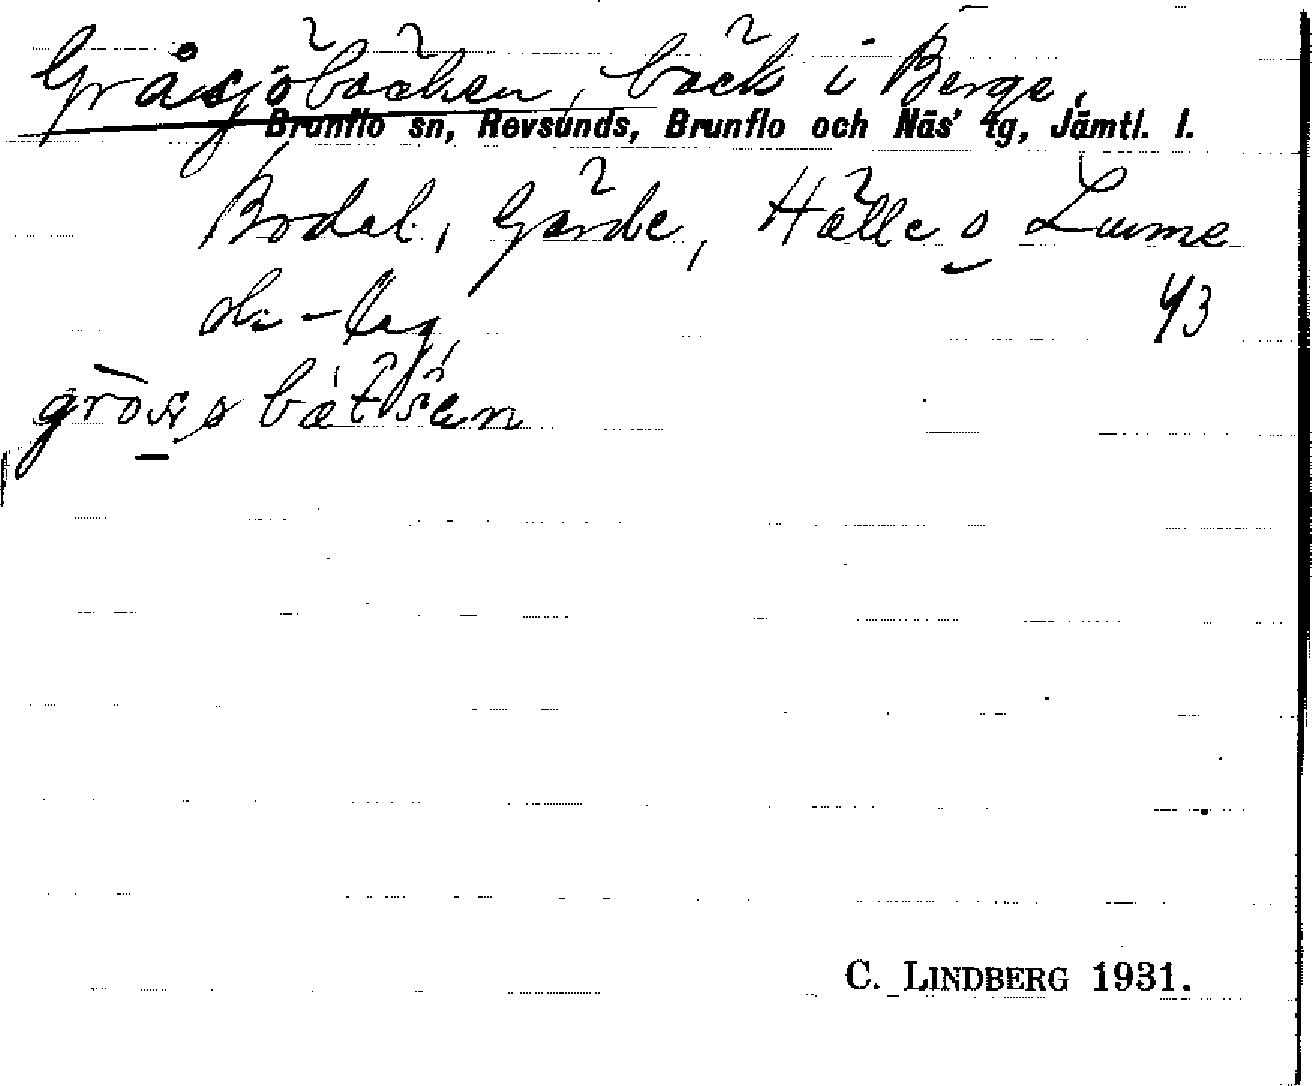 Gråsjöbäcken, bäck i Berge,
Brunflo sn, Revsunds, Brunflo och Näs' tg, Jämtl. l.
Bodal, Gärde, Hälle o Lunne
43
C. LINDBERG 1931.